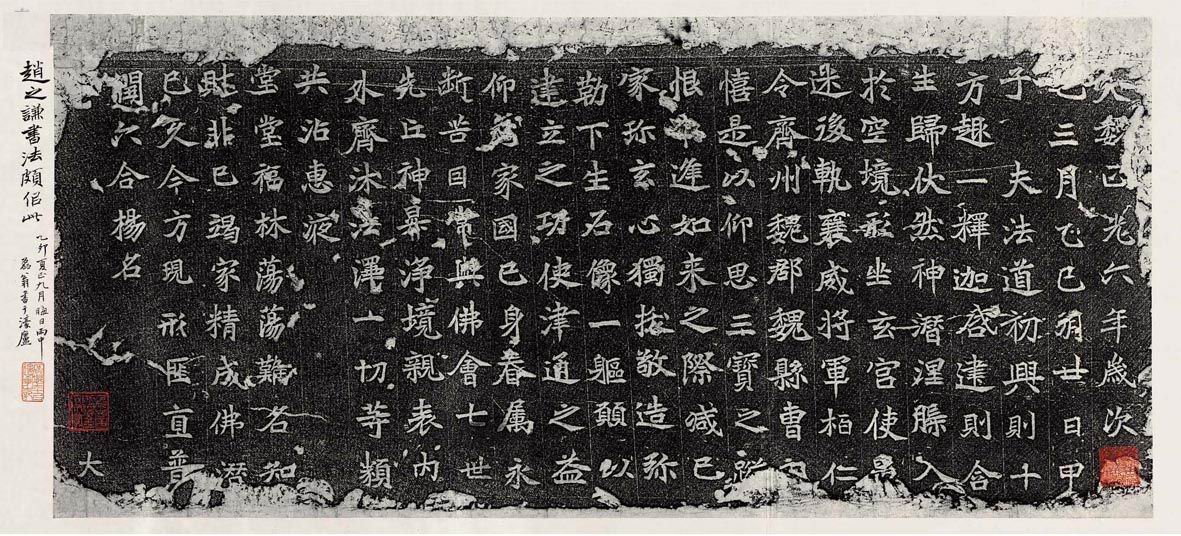 大魏正光六年歲次
巳三月乙巳朔廿日甲
子夫法道初興則十
方趣一釋迦啓建則含
生歸伏然神潛涅槃入
於空境形坐玄宮使愚
迷後軌襄威將軍栢仁
令齊州魏郡魏縣曹望
憘是以仰思三寶之蹤
恨未進如來之際減己
家珎玄心獨拔敬造弥
勒下生石像一軀願以
建立之功使津通之益
仰為家國己身眷属永
斷苦因常與佛會七世
先亡神暮淨境親表內
外齊沐法澤一切等類
共沾惠液
堂堂福林蕩蕩難名知
財非已竭家精成佛潛
已久今方現形匪直普
聞六合揚名 大
趙之謙書法頗佀此
乙卯夏正九月晦日雨中
翁書于濠廬